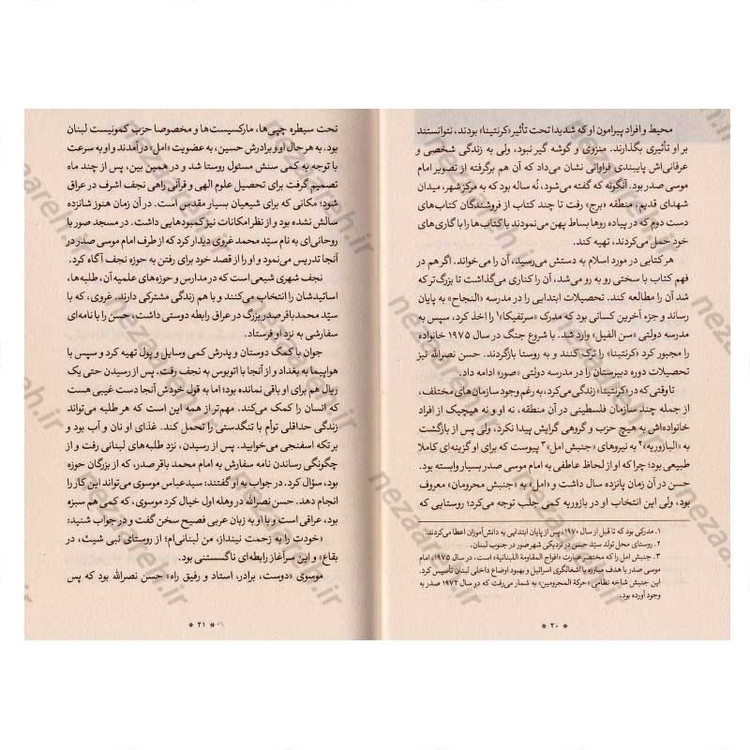 محیط و افراد پیرامون او که شدیدا تحت تأثیر «کرنتینا» بودند، نتوانستند
بر او تأثیری بگذارند. منزوی و گوشه گیر نبود، ولی به زندگی شخصی و
عرفانی‌اش پایبندی فراوانی نشان می‌داد که آن هم برگرفته از تصویر امام
موسی صدر بود. آنگونه که گفته می‌شود، نُه ساله بود که به مرکز شهر، میدان
شهدای قدیم، منطقه «برج» رفت تا چند کتاب از فروشندگان کتاب‌های
دست دوم که در پیاده روها بساط پهن می‌نمودند یا کتاب‌ها را با گاری‌های
خود حمل می‌کردند، تهیه کند.
هر کتابی در مورد اسلام به دستش می‌رسید، آن را می‌خواند. اگر هم در
فهم کتاب با سختی رو به رو می‌شد، آن را کناری می‌گذاشت تا بزرگ‌تر که
شد آن را مطالعه کند. تحصیلات ابتدایی را در مدرسه «النجاح» به پایان
رساند و جزء آخرین کسانی بود که مدرک «سرتفیکا»۱ را اخذ کرد، سپس به
مدرسه دولتی «سن الفیل» وارد شد. با شروع جنگ در سال ۱۹۷۵ خانواده
را مجبور کرد «کرنتینا» را ترک کنند و به روستا بازگردند. حسن نصرالله نیز
تحصیلات دوره دبیرستان را در مدرسه دولتی «صور» ادامه داد.
تا وقتی که در «کرنتینا» زندگی می‌کرد، به رغم وجود سازمان‌های مختلف،
از جمله چند سازمان فلسطینی در آن منطقه، نه او و نه هیچیک از افراد
خانواده‌اش به هیچ حزب و گروهی گرایش پیدا نکرد، ولی پس از بازگشت
به «البازوریه»۲ به نیروهای «جنبش امل»۳ پیوست که برای او گزینه‌ای کاملا
طبیعی بود؛ چرا که او از لحاظ عاطفی به امام موسی صدر بسیار وابسته بود.
حسن در آن زمان پانزده سال داشت و «امل» به «جنبش محرومان» معروف
بود، ولی این انتخاب او در بازوریه کمی جلب توجه می‌کرد؛ روستایی که
۱. مدرکی بود که تا قبل از سال ۱۹۷۰، پس از پایان ابتدایی به دانش‌آموزان اعطا می‌کردند.
۲. روستای محل تولد سیّد حسن در نزدیکی شهر صور در جنوب لبنان.
۳. جنبش امل را که مختصر عبارت «افواج المقاومة اللبنانیة» است، در سال ۱۹۷۵ امام
موسی صدر با هدف مبارزه با اشغالگری اسرائیل و بهبود اوضاع داخلی لبنان تأسیس کرد.
این جنبش شاخه نظامی «حرکة المحرومین» به شمار می‌رفت که در سال ۱۹۷۲ صدر به
وجود آورده بود.
* ۲۰ *
تحت سیطره چپی‌ها، مارکسیست‌ها و مخصوصا حزب کمونیست لبنان
بود. به هر حال او و برادرش حسین، به عضویت «امل» درآمدند و او به سرعت
با توجه به کمی سنش مسئول روستا شد و در همین بین، پس از چند ماه
تصمیم گرفت برای تحصیل علوم الهی و قرآنی راهی نجف اشرف در عراق
شود؛ مکانی که برای شیعیان بسیار مقدس است. در آن زمان هنوز شانزده
سالش نشده بود و از نظر امکانات نیز کمبودهایی داشت. در مسجد صور با
روحانی‌ای به نام سیّد محمد غروی دیدار کرد که از طرف امام موسی صدر در
آنجا تدریس می‌نمود و او را از قصد خود برای رفتن به حوزه نجف آگاه کرد.
نجف شهری شیعی است که در مدارس و حوزه‌های علمیه آن، طلبه‌ها،
اساتیدشان را انتخاب می‌کنند و با هم زندگی مشترکی دارند. غروی، که با
سیّد محمد باقر صدر بزرگ در عراق رابطه دوستی داشت، حسن را با نامه‌ای
سفارشی به نزد او فرستاد.
جوان با کمک دوستان و پدرش کمی وسایل و پول تهیه کرد و سپس با
هواپیما به بغداد و از آنجا با اتوبوس به نجف رفت. پس از رسیدن حتی یک
ریال هم برای او باقی نمانده بود؛ اما به قول خودش آنجا دست غیبی هست
که انسان را کمک می‌کند. مهم‌تر از همه این است که هر طلبه می‌تواند
زندگی حداقلی توأم با تنگدستی را تحمل کند. غذای او نان و آب بود و
بر تکه اسفنجی می‌خوابید. پس از رسیدن، نزد طلبه‌های لبنانی رفت و از
چگونگی رساندن نامه سفارش به امام محمد باقر صدر، که از بزرگان حوزه
بود، سؤال کرد. در جواب به او گفتند: سیدعباس موسوی می‌تواند این کار را
انجام دهد. حسن نصرالله در وهله اول خیال کرد موسوی، که کمی هم سبزه
بود، عراقی است و با او به زبان عربی فصیح سخن گفت و در جواب شنید:
«خودت را به زحمت نینداز، من لبنانی‌ام؛ از روستای نبی شیث، در
بقاع» و این سرآغاز رابطه‌ای ناگسستنی بود.
موسوی «دوست، برادر، استاد و رفیق راه» حسن نصرالله بود که پس
* ۲۱ *
nezaareh.ir